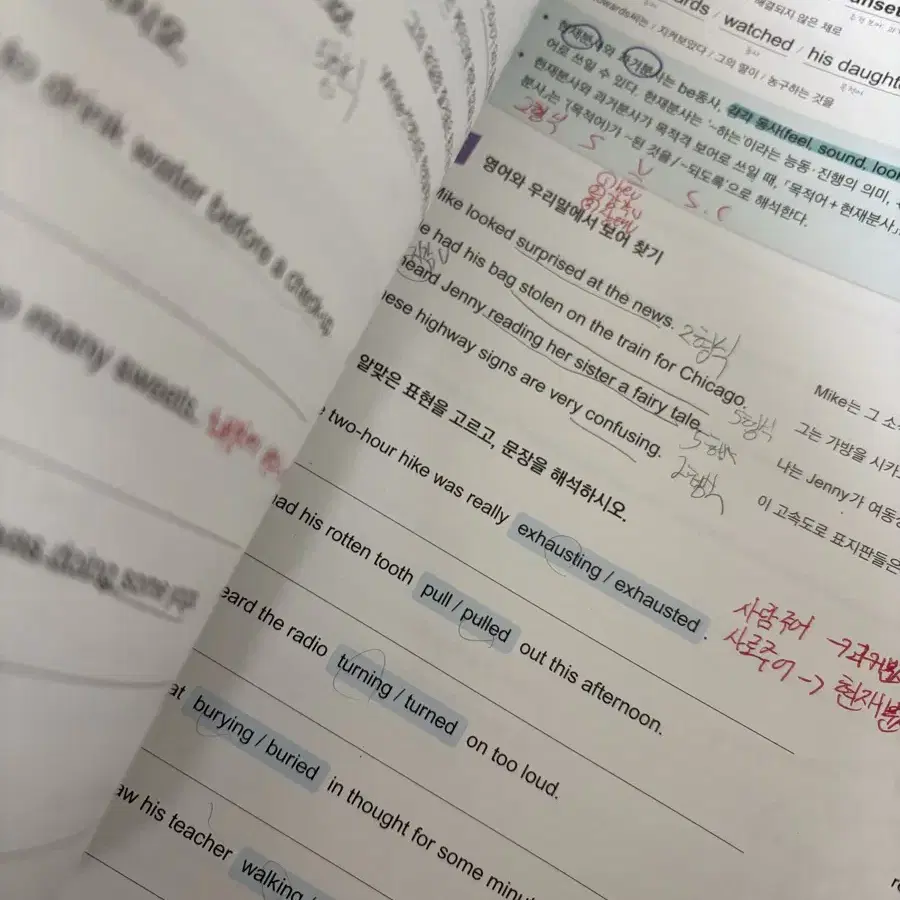 to drink water before a checkup
many sweets.
5형식
watched / his daught
해결되지 않은 채로
지켜보았다 / 그의 딸이 / 농구하는 것을
동사
목적어
• 현재분사와 과거분사는 be동사, 감각 동사(feel, sound, loo
어로 쓰일 수 있다. 현재분사는 '~하는'이라는 능동·진행의 의미,
• 현재분사와 과거분사가 목적격 보어로 쓰일 때, 「목적어+현재분사」
분사」는 「(목적어)가 ~된 것을/~되도록」으로 해석한다.
2형식 S V S.C
영어와 우리말에서 보어 찾기
Mike looked surprised at the news. 2형식
e had his bag stolen on the train for Chicago. 5형식
heard Jenny reading her sister a fairy tale. 5형식
hese highway signs are very confusing. 2형식
Mike는 그 소
그는 가방을 시카
나는 Jenny가 여동
이 고속도로 표지판들은
알맞은 표현을 고르고, 문장을 해석하시오.
two-hour hike was really exhausting / exhausted.
사람주어 → 과거분
사물주어 → 현재분
had his rotten tooth pull / pulled out this afternoon.
eard the radio turning / turned on too loud.
at burying / buried in thought for some minu
aw his teacher walking /